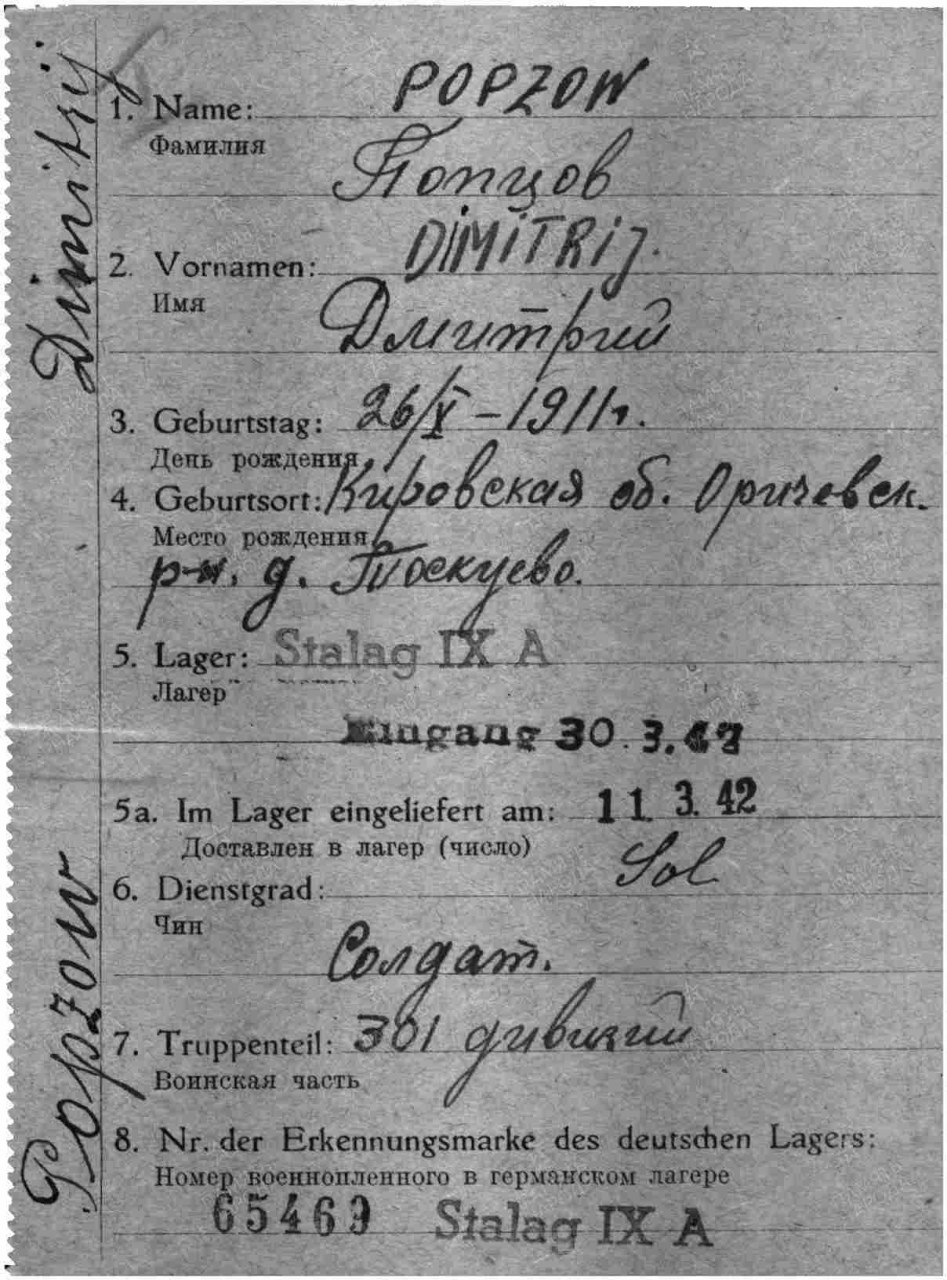 Dimitrij
Popzow
1. Name: POPZOW
Фамилия
Попцов
2. Vornamen: DIMITRIJ.
Имя
Дмитрий
3. Geburtstag: 26/X – 1911 г.
День рождения
4. Geburtsort: Кировская об. Оричевск.
Место рождения
р-н. д. Тоскуево.
5. Lager: Stalag IX A
Лагер
Eingang 30.3.42
5a. Im Lager eingeliefert am: 11. 3. 42
Доставлен в лагер (число)
Sol
6. Dienstgrad:
Чин
Солдат.
7. Truppenteil: 301 дивизии
Воинская часть
8. Nr. der Erkennungsmarke des deutschen Lagers:
Номер военнопленного в германском лагере
65469 Stalag IX A